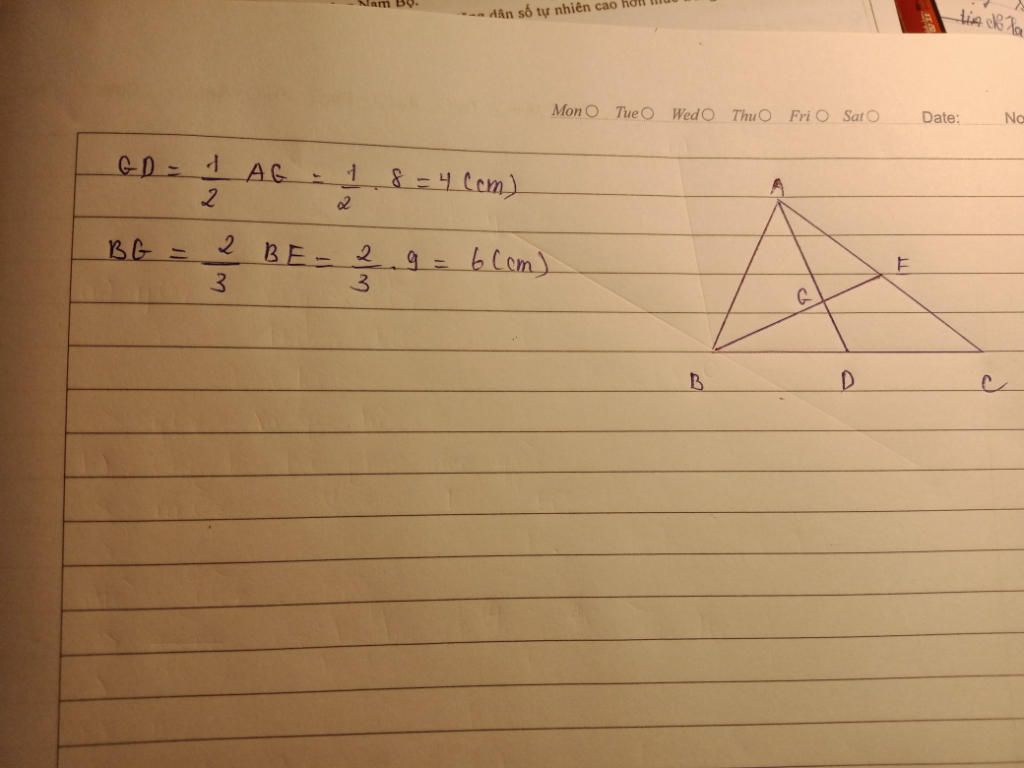 Nam Bộ.
dân số tự nhiên cao hơn
Mon Tue Wed Thu Fri Sat Date: No
GD = 1/2 AG = 1/2 . 8 = 4 (cm)
BG = 2/3 BE = 2/3 . 9 = 6 (cm)
A
E
G
B D C